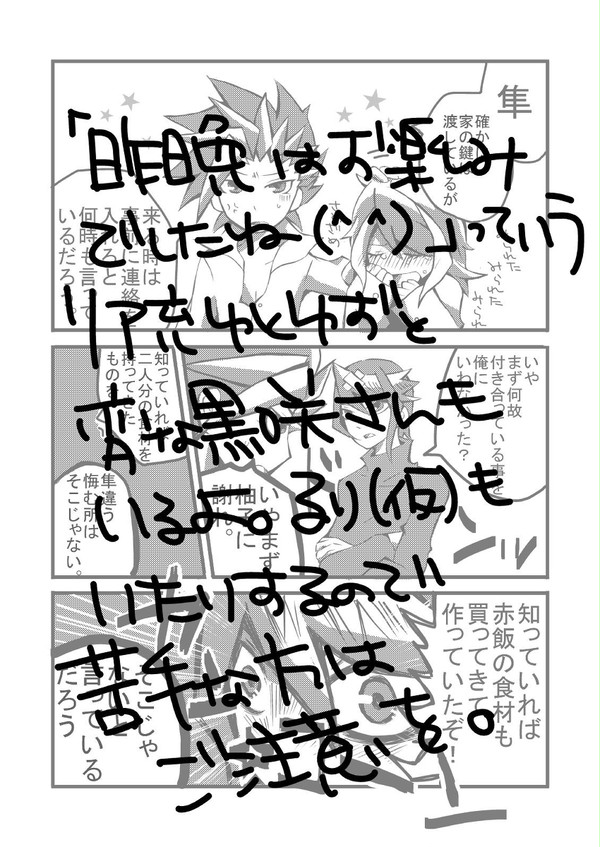 「昨晩はお楽しみ
でしたね(^^)」っていう
リア充ゆとゆずと
変な黒咲さんも
いるよ。るり(仮)も
いたりするので
苦手な方は
ご注意を。
隼
確か
家の鍵は
渡しているが
来る時は
事前に連絡を
入れろと
何時も言って
いるだろう。
みられた
みられた
いや
まず何故
付き合っている事を
俺に
知っていれば
二人分の食材を
持ってきた
ものを
いやまず
柚子に
謝れ。
隼違う
悔む所は
そこじゃない。
知っていれば
赤飯の食材も
買ってきて
作っていたぞ!
そこじゃ
ないと
言っている
だろう